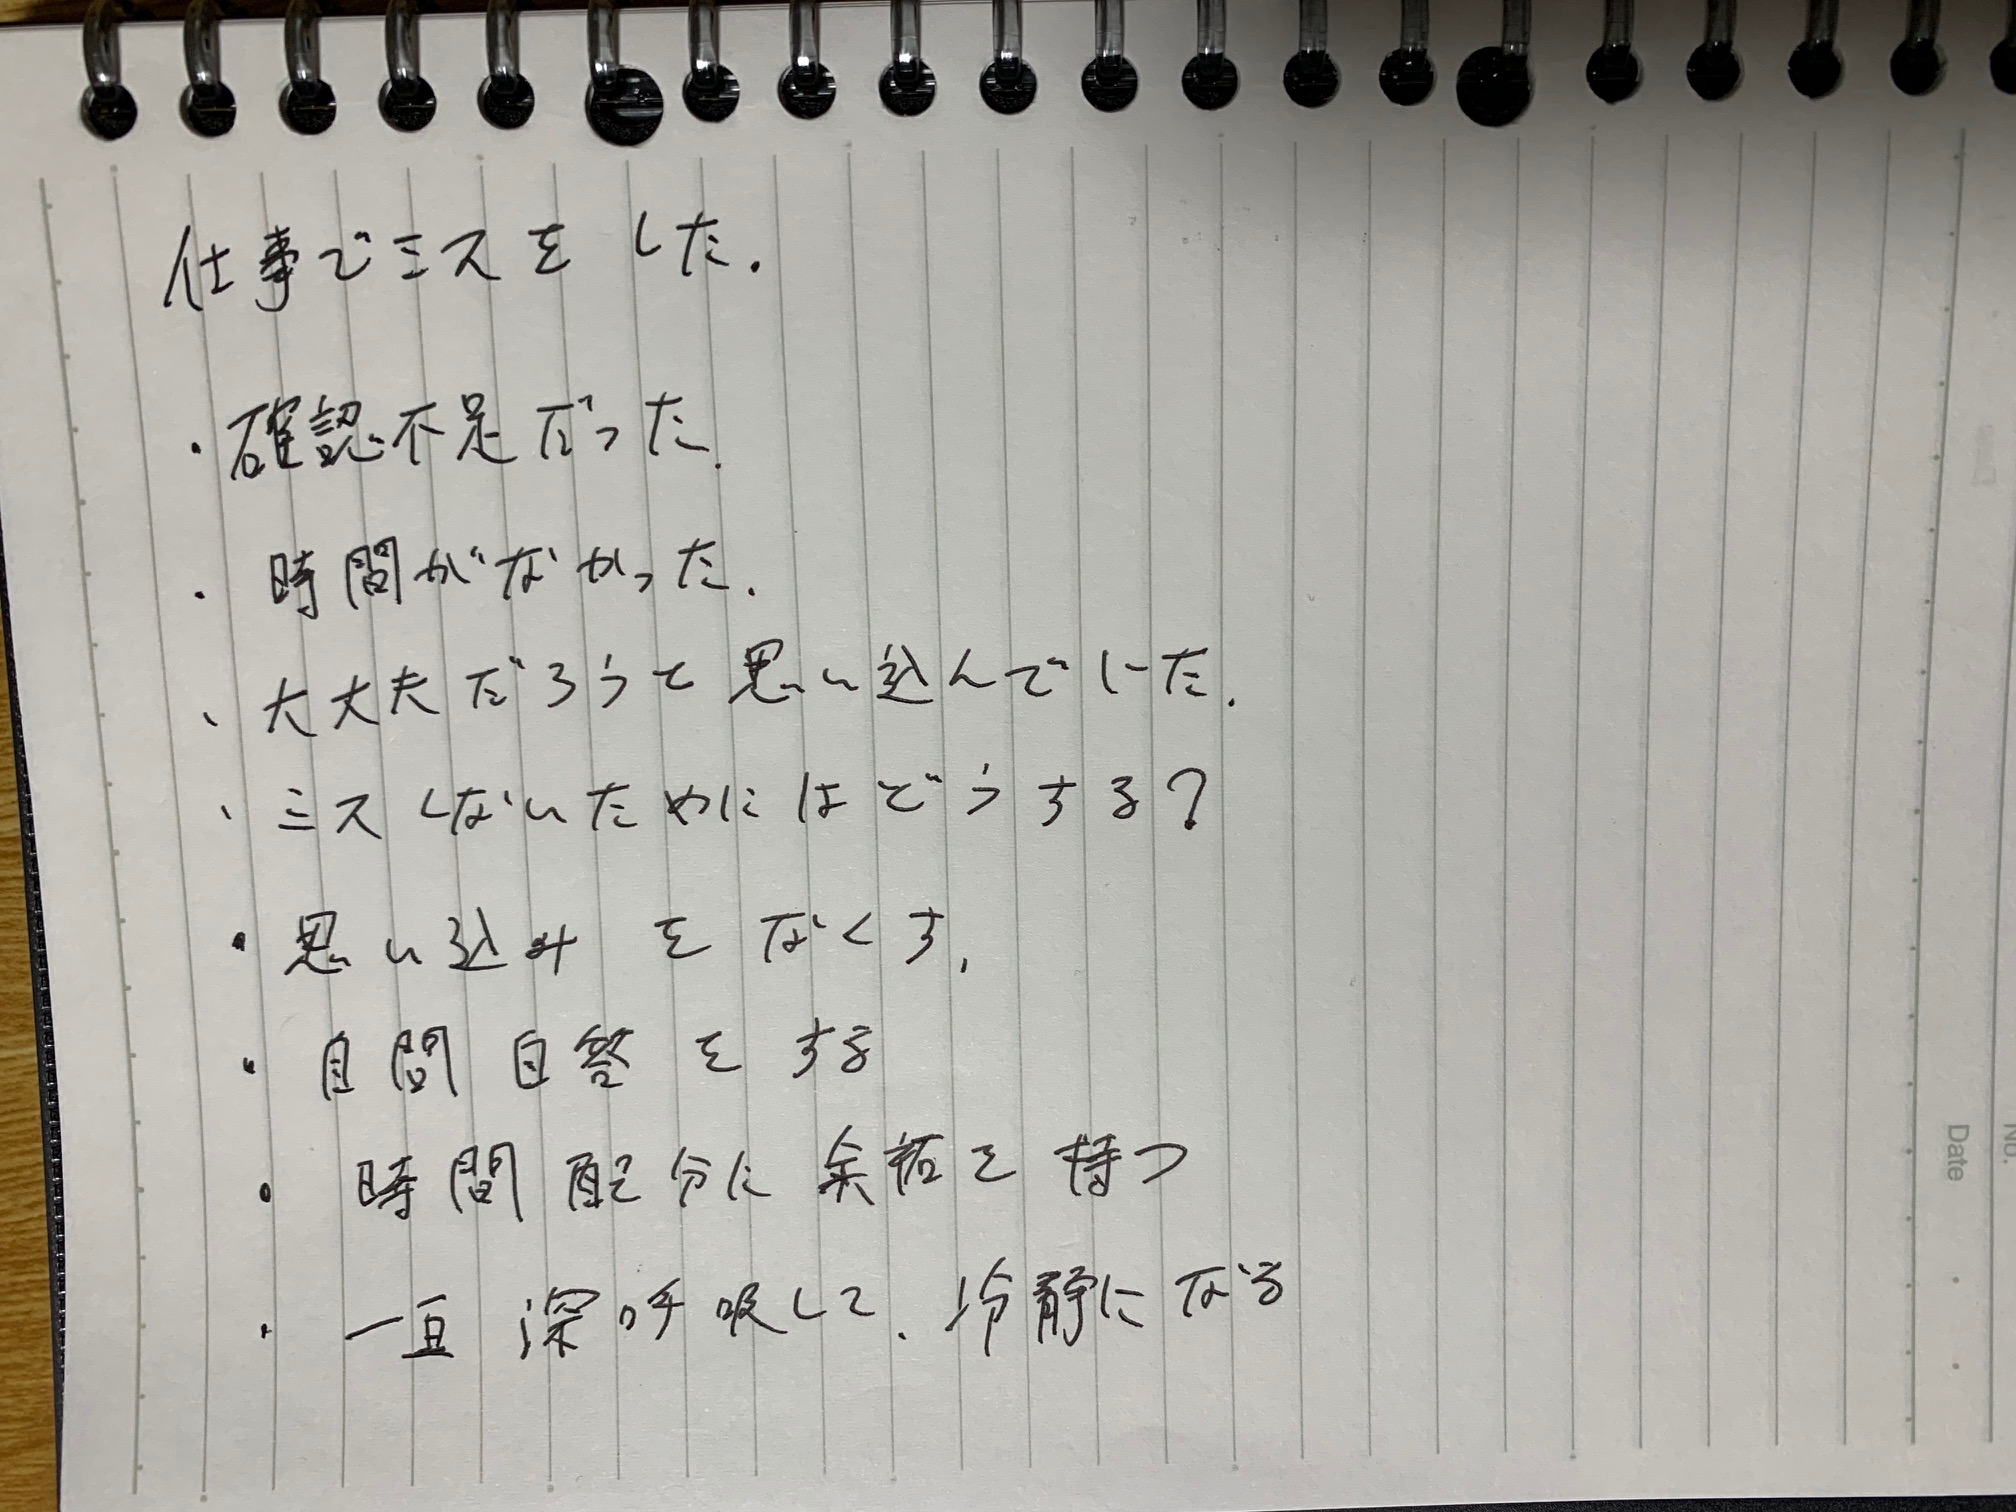 仕事でミスをした.
・確認不足だった.
・時間がなかった.
、大丈夫だろうと思い込んでいた.
、ミスしないためにはどうする?
・思い込みをなくす.
・自問自答をする
・時間配分に余裕を持つ
・一旦深呼吸して、冷静になる
No.
Date